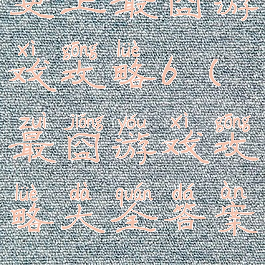 史上最囧游
xì gōng lüè
戏攻略6(
zuì jiǒng yóu xì gōng
最囧游戏攻
lüè dà quán dá àn
略大全答案